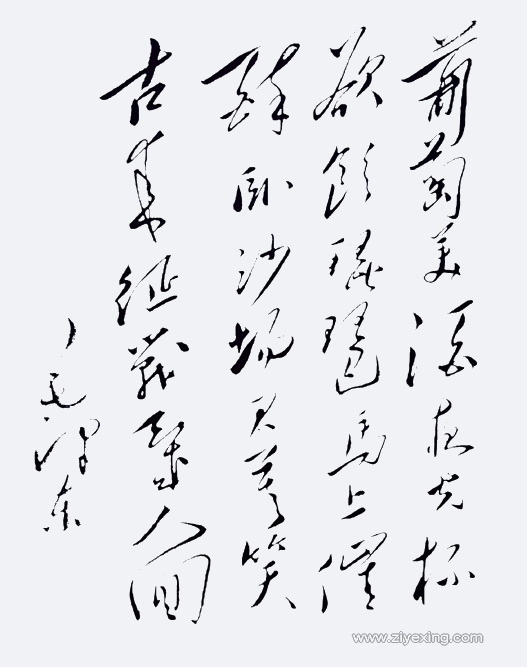 葡萄美酒夜光杯
欲飲琵琶馬上催
醉卧沙場君莫笑
古來征戰幾人回
毛澤東
www.ziyexing.com